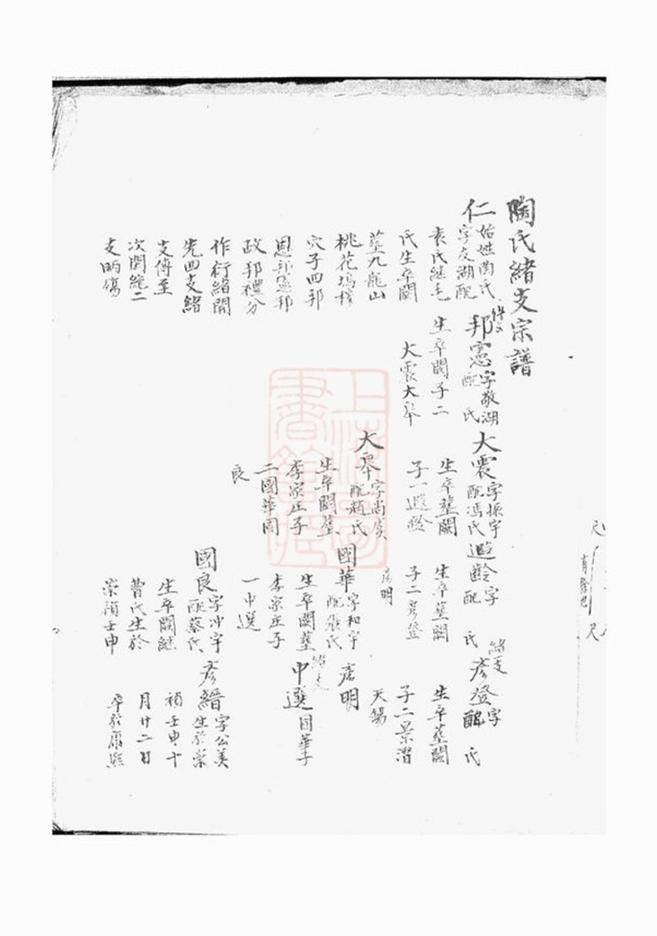 陶氏緒支宗譜
仁
始姓陶氏
字友湖配
袁氏繼毛
氏生卒闕
葬九龍山
桃花塢
穴子四邦
恩邦憲邦
政邦禮分
作衍緒開
先四支緒
支傳至
次開絕二
支
邦憲
字敬湖
配 氏
生卒闕子二
大震大
大震
字振宇
配馮氏
生卒葬闕
子一遐齡
大
字尚
配趙氏
生卒闕葬
李家庄子
二國華國
良
遐齡
字
配 氏
生卒葬闕
子二彥登
彥明
國華
字和宇
配 氏
生卒闕葬
李家庄子
一中選
國良
字冲宇
配蔡氏
生卒闕繼
曹氏生於
崇禎壬申
緒支
彥登
字
配 氏
生卒葬闕
子二景濳
天錫
彥明
中選
國華子
彥縉
字公美
生於崇
禎壬申十
月廿二日
卒於康熙